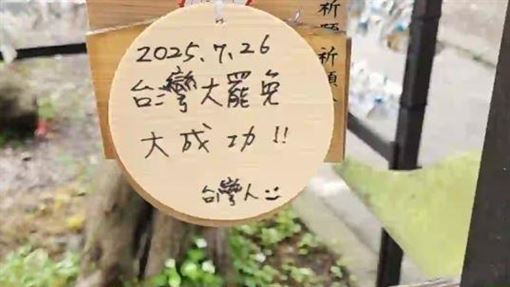 2025.7.26
台灣大罷免
大成功!!
台灣人
祈願 祈願